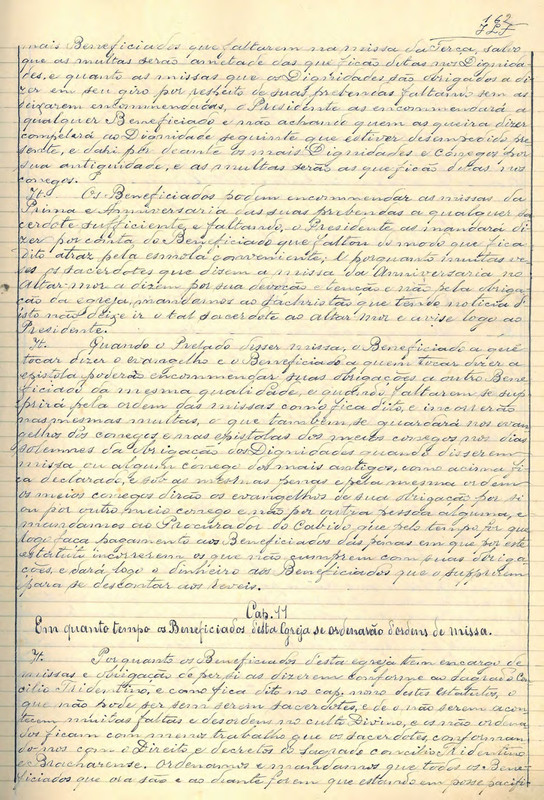 152
mais Beneficiados que faltarem na missa da Terça, salvo
que as multas serão ametade das que ficão ditas nos Dignida-
des, e quanto as missas que os Dignidades são obrigados a di-
zer em seu giro por respeito de suas prebendas faltam sem as
deixarem encommendadas, o Presidente as encommendará a
qualquer Beneficiado e não achando quem as queira dizer
compelirá ao Dignidade seguinte que estiver desempedido pre-
sente, e dahi por deante os mais Dignidades e conegos por
sua antiguidade, e as multas serão as que ficão ditas nos
conegos.
It. Os Beneficiados podem encommendar as missas da
Prima e Anniversaria das suas prebendas a qualquer sa-
cerdote sufficiente, e faltando, o Presidente as mandará di-
zer por conta do Beneficiado que faltou do modo que fica
dito atraz pela esmola conveniente; E porquanto muitas ve-
ses os sacerdotes que disem a missa da Anniversaria no
Altar-mor a dizem por sua devoção e tenção e não pela obriga-
ção da egreja, mandamos ao Sachristão que tendo noticia d'
isto não deixe ir o tal sacerdote ao altar mor e avise logo ao
Presidente.
It. Quando o Prelado disser missa, o Beneficiado a quem
tocar dizer o evangelho e o Beneficiado a quem tocar dizer a
epistola poderão encommendar suas obrigações a outro Bene-
ficiado da mesma qualidade, e quando faltarem se sup-
prirá pela ordem das missas como fica dito, e incorrerão
nas mesmas multas, o que tambem se guardará nos evan-
gelhos dos conegos e nas epistolas dos meios conegos nos dias
solemnes da obrigação dos Dignidades quando disserem
missa ou algum conego dos mais antigos, como acima fi-
ca declarado, e sob as mesmas penas e pela mesma ordem
os meios conegos dirão os evangelhos de sua obrigação por si
ou por outro meio conego e não por outra pessoa alguma, e
mandamos ao Procurador do Cabido, que pelo tempo for que
logo faça pagamento aos Beneficiados das penas em que por este
estatuto incorrerem os que não cumprem com suas obriga-
ções, e dará logo o dinheiro aos Beneficiados que o supprirem
para se descontar aos reveis.
Cap. 11
Em quanto tempo os Beneficiados desta Igreja se ordenarão d'ordens de missa.
It. Porquanto os Beneficiados d'esta egreja teem encargo de
missas e obrigação de per si as dizerem conforme ao sagrado Con-
cilio Tridentino, e como fica dito no cap. nono destes Estatutos, o
que não pode ser sem serem sacerdotes, e de o não serem acon-
tecem muitas faltas e desordens no culto Divino, e os não ordena-
dos ficam com menos trabalho que os sacerdotes, conforman-
do-nos com o Direito, e decretos do sagrado concilio Tridentino
e Bracharense. Ordenamos e mandamos que todos os Bene-
ficiados que ora são e ao diante forem que estando em posse pacifi-